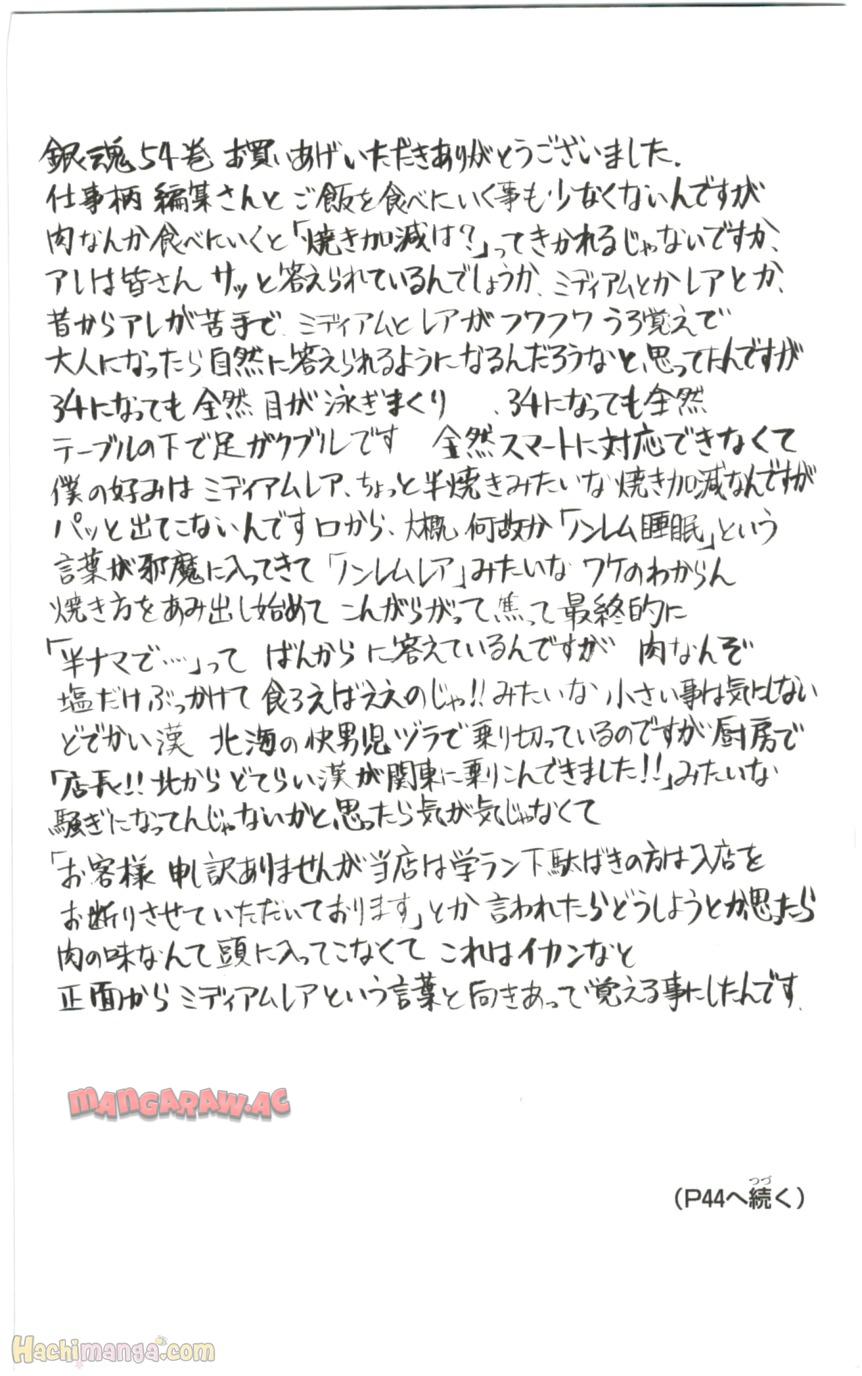 銀魂54巻 お買いあげいただきありがとうございました.
仕事柄 編集さんと ご飯を食べにいく事も少なくないんですが
肉なんか食べにいくと「焼き加減は?」ってきかれるじゃないですか、
アレは皆さん サッと答えられているんでしょうか、ミディアムとか レアとか、
昔からアレが苦手で、ミディアムと レアが フワフワ うろ覚えで
大人になったら自然に答えられるようになるんだろうなと、思ってたんですが
34になっても 全然 目が 泳ぎまくり 、34になっても全然
テーブルの下で足がクブルです 全然スマートに対応できなくて
僕の好みは ミディアムレア、ちょっと半焼きみたいな焼き加減なんですが
パッと出てこないんです口から、大概 何故か「ノンレム睡眠」という
言葉が邪魔に入ってきて「ノンレムレア」みたいな ワケのわからん
焼き方をあみ出し始めて こんがらがって、焦って最終的に
「半ナマで…」って ばんからに答えているんですが 肉なんぞ
塩だけぶっかけて 食ろえばええのじゃ!!みたいな 小さい事は気にしない
どでかい漢 北海の快男児ヅラで乗り切っているのですが 厨房で
「店長!! 北から どてらい漢が関東に乗りこんできました!!」みたいな
騒ぎになってんじゃないかと、思ったら気が気じゃなくて
「お客様 申し訳ありませんが当店は学ラン下駄ばきの方は入店を
お断りさせていただいております」とか 言われたらどうしようとか思ったら
肉の味なんて頭に入ってこなくて これはイカンなと
正面から ミディアムレアという言葉と向きあって覚える事にしたんです.
MANGARAW.AC
(P44へ続く)
つづ
Hachimanga.com